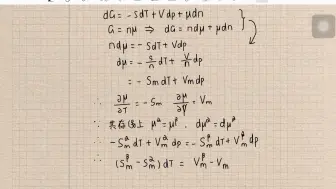 dG = -SdT + Vdp + μdn
G = nμ ⇒ dG = ndμ + μdn
ndμ = -SdT + Vdp
dμ = -S/n dT + V/n dp
= -SmdT + Vmdp
∴ ∂μ/∂T = -Sm ∂μ/∂p = Vm
∵ 共存线上 μ^α = μ^β . dμ^α = dμ^β
∴ -Sm^α dT + Vm^α dp = -Sm^β dT + Vm^β dp
∴ (Sm^β - Sm^α) dT = Vm^β - Vm